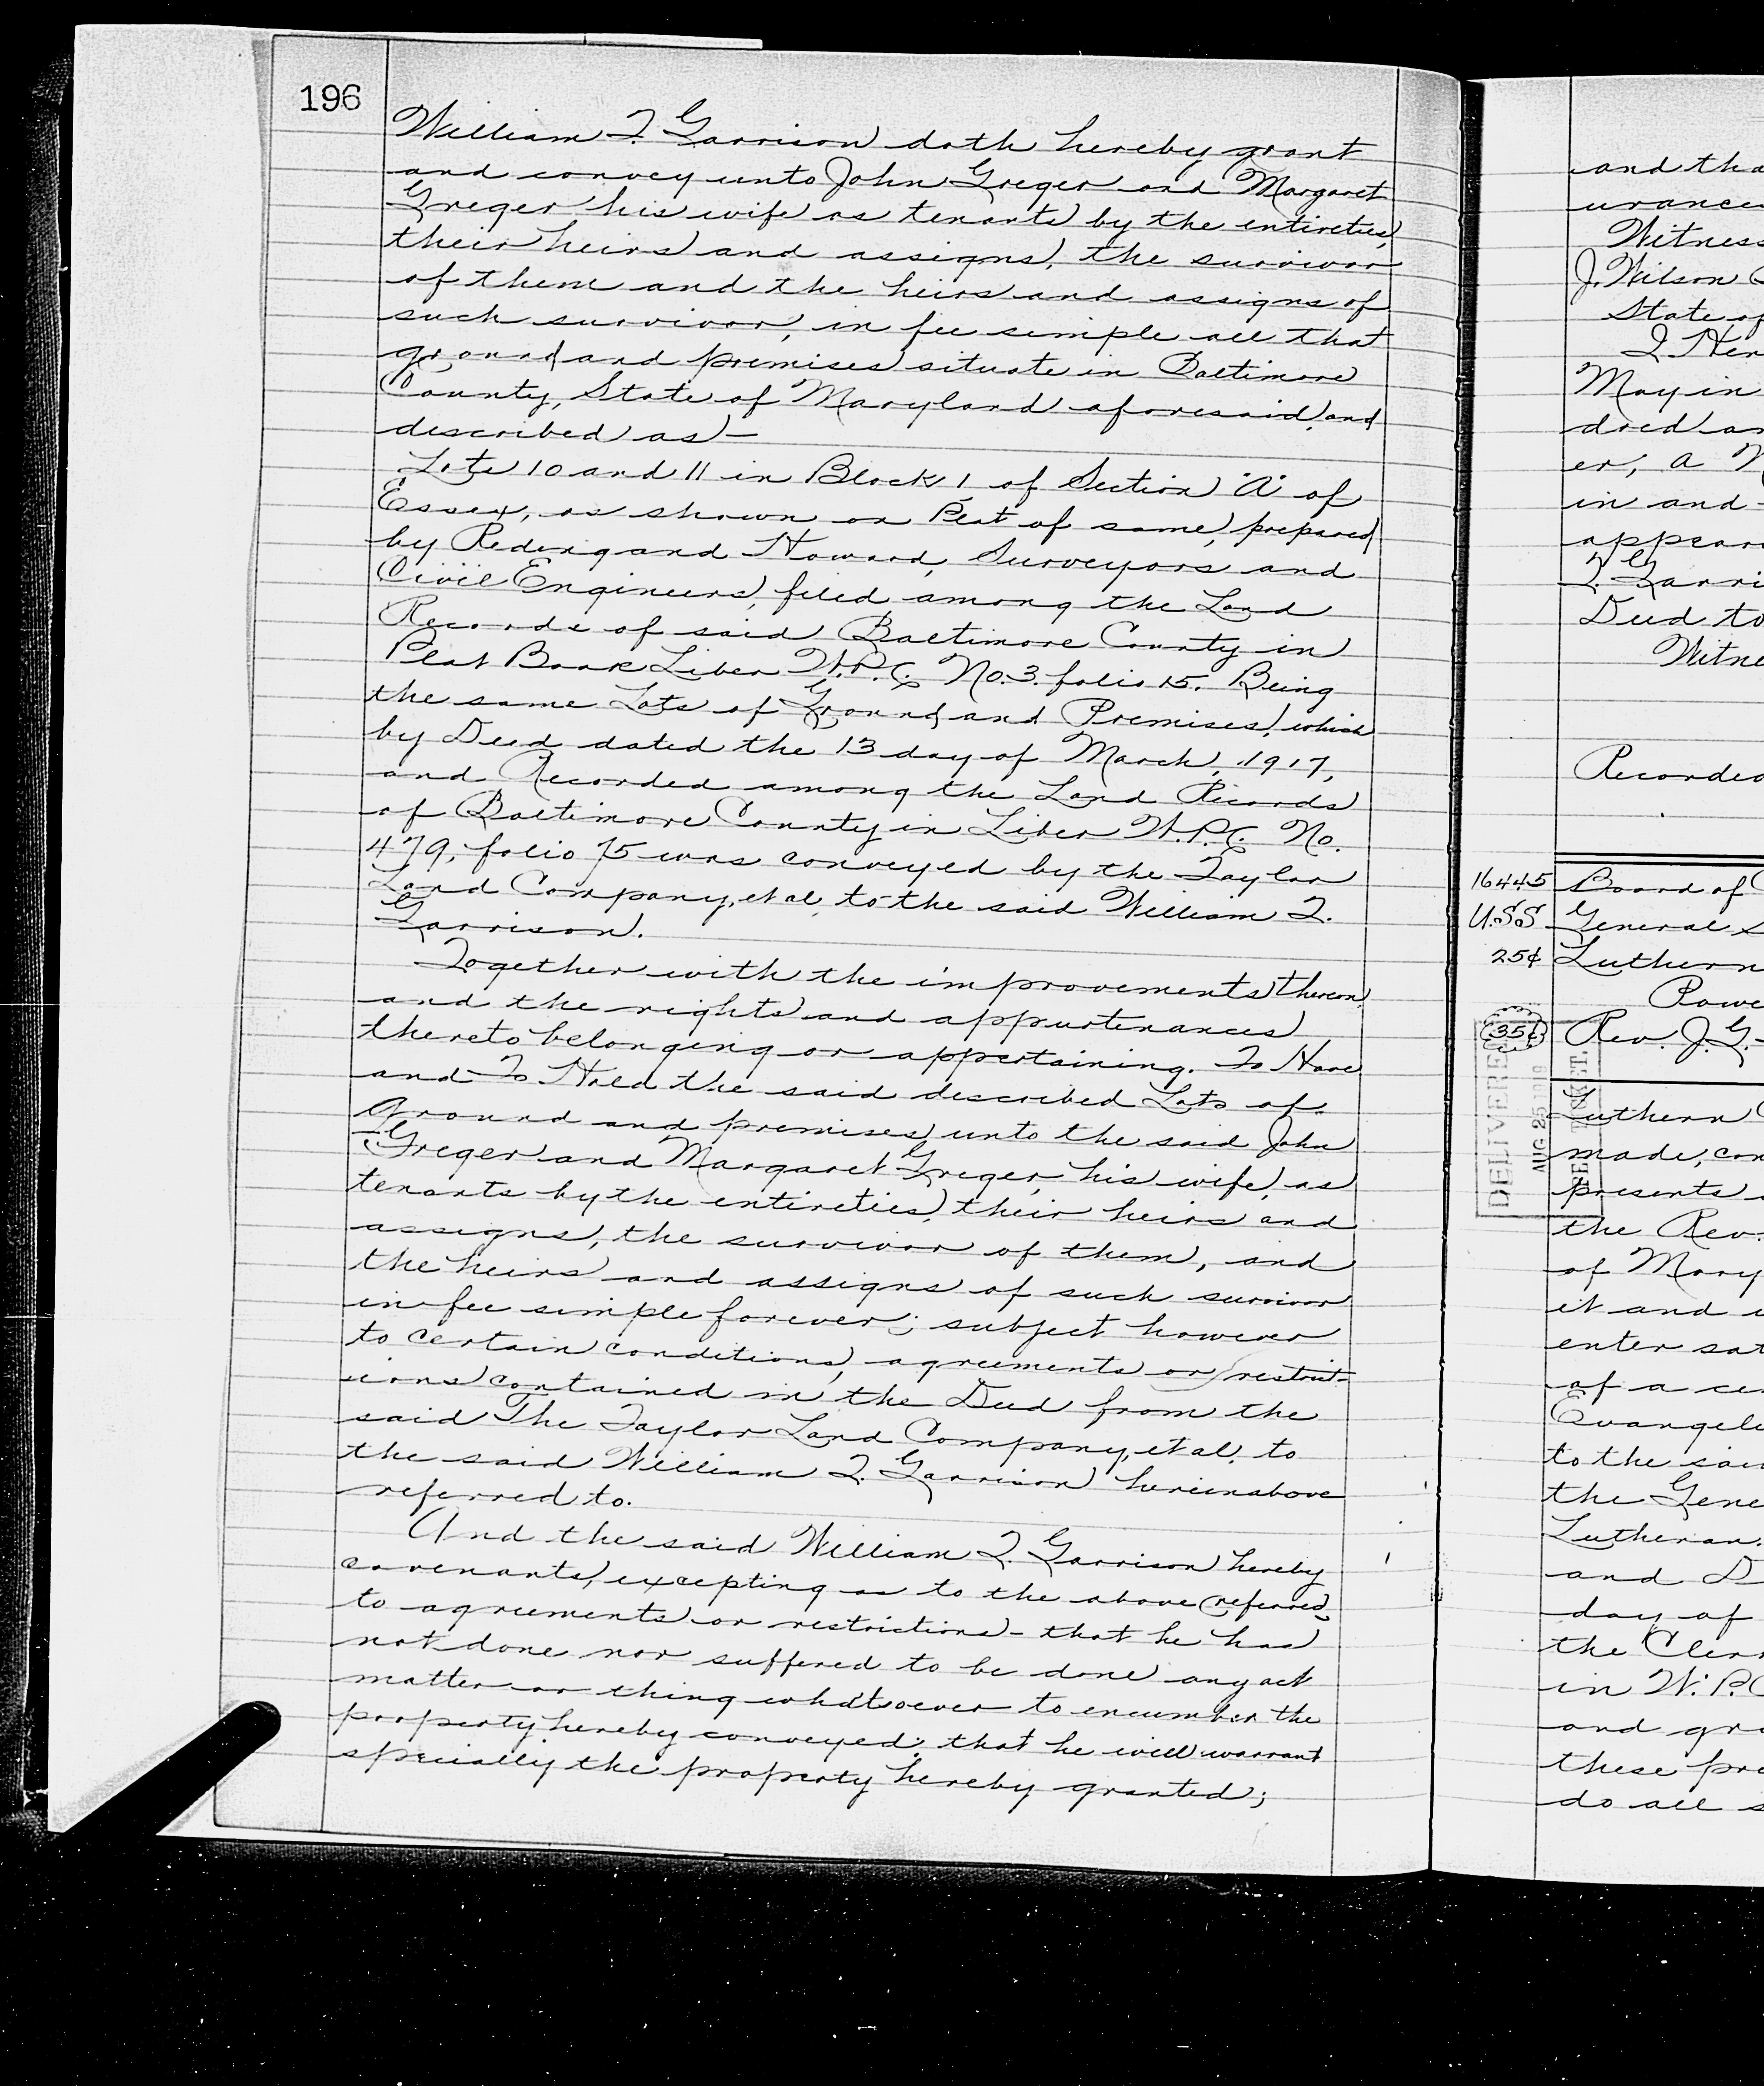 196
William T. Garrison doth hereby grant
and convey unto John Greger and Margaret
Greger his wife as tenants by the entireties,
their heirs and assigns, the survivor
of them and the heirs and assigns of
such survivor, in fee simple all that
ground and premises situate in Baltimore
County, State of Maryland aforesaid, and
described as—
Lots 10 and 11 in Block 1 of Section "A" of
Essex, as shown on Plat of same, prepared
by Reding and Howard, Surveyors and
Civil Engineers, filed among the Land
Records of said Baltimore County in
Plat Book Liber W.P.C. No. 3. folio 15. Being
the same Lots of Ground and Premises, which
by Deed dated the 13 day of March, 1917,
and Recorded among the Land Records
of Baltimore County in Liber W.P.C. No.
479, folio 75 was conveyed by the Taylor
Land Company, et al, to the said William T.
Garrison.
Together with the improvements thereon
and the rights and appurtenances
thereto belonging or appertaining. To Have
and To Hold the said described Lots of
ground and premises unto the said John
Greger and Margaret Greger, his wife, as
tenants by the entireties, their heirs and
assigns, the survivor of them, and
the heirs and assigns of such survivor
in fee simple forever; subject however
to certain conditions, agreements or restrict-
ions contained in the Deed from the
said The Taylor Land Company, et al. to
the said William T. Garrison hereinabove
referred to.
And the said William T. Garrison hereby
covenants, excepting as to the above referred
to agreements or restrictions - that he has
not done nor suffered to be done any act
matter or thing whatsoever to encumber the
property hereby conveyed; that he will warrant
specially the property hereby granted;
and tha
urance
Witness
J. Wilson
State of
I Her
May in
dred an
er, a N
in and
appear
T. Garri
Deed to
Witne
Recorded
16445 Board of
U.S.S. General S
25¢ Luthern
Powe
35¢ Rev. J. G.
DELIVERED
AUG 25
Luthern C
made, con
presents
the Rev.
of Mary
it and
enter sat
of a ce
Evangele
to the sai
the Gene
Lutheran
and D
day of
the Cler
in W.P.C
and gra
these pre
do all s